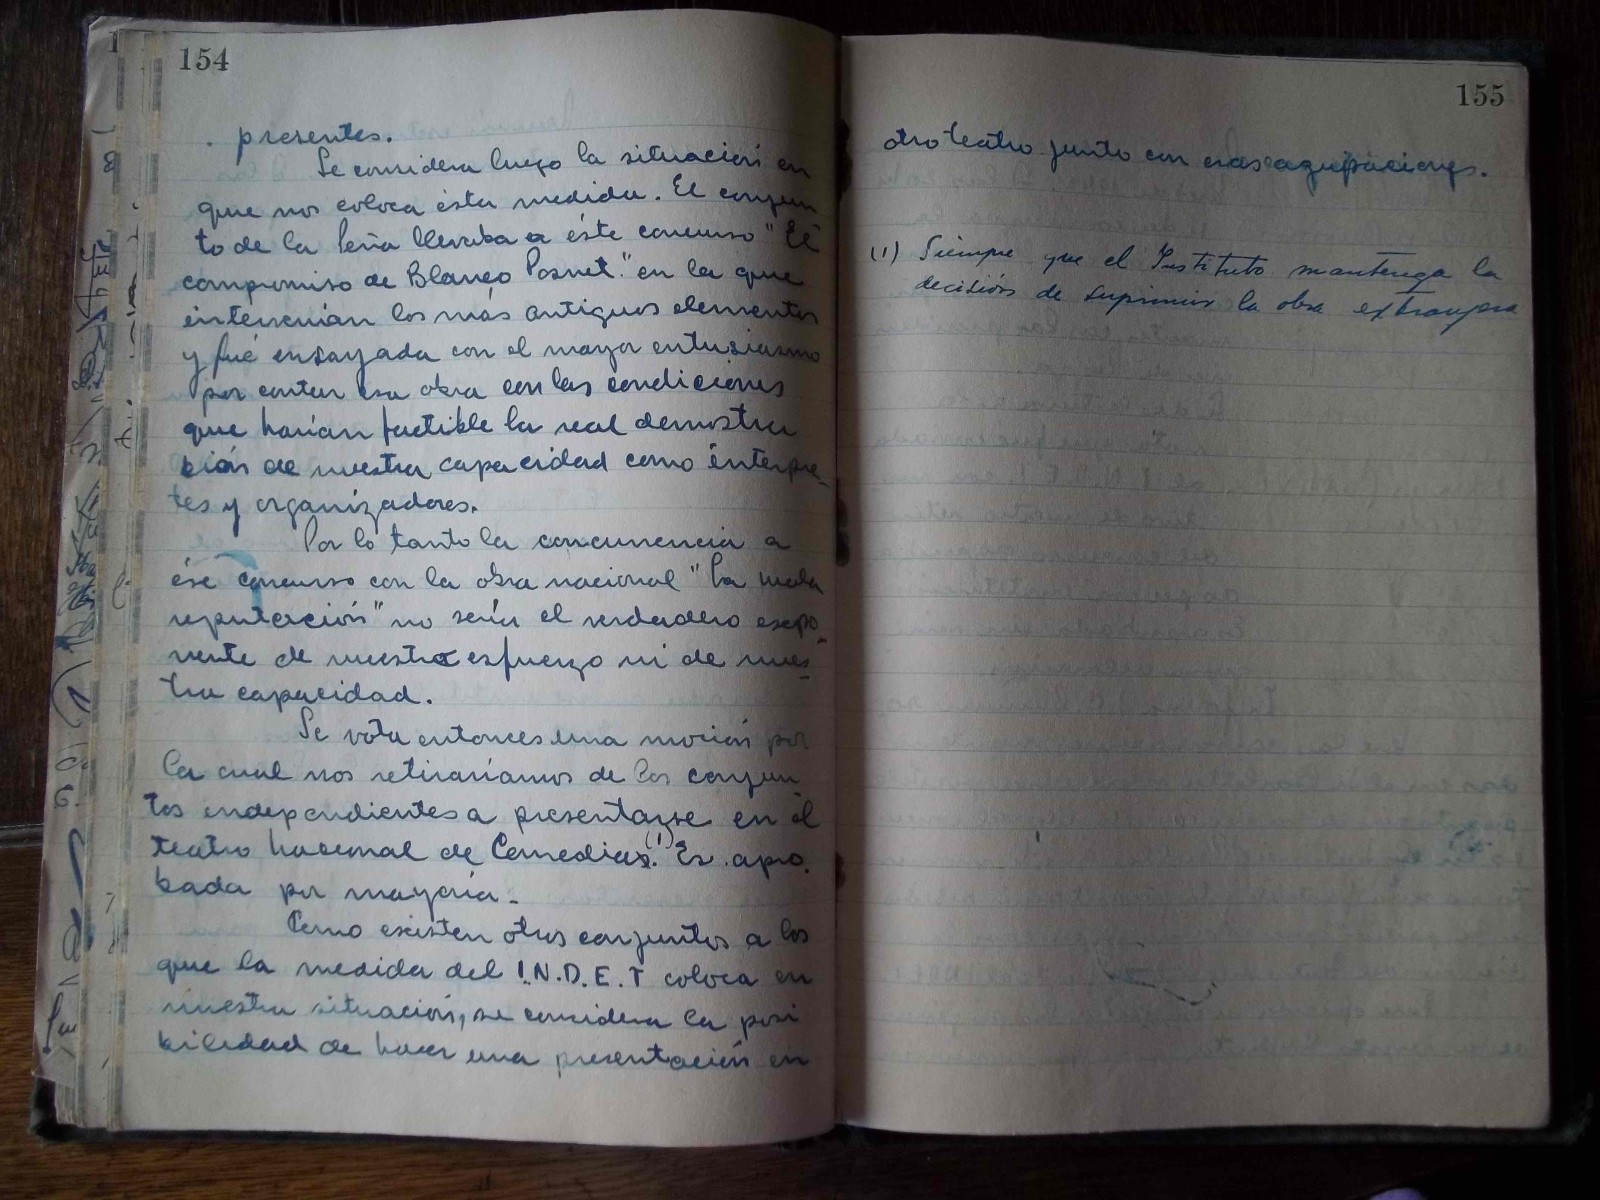 154
presentes.
Se considera luego la situación en
que nos coloca ésta medida. El conjun
to de la Peña llevaba a éste concurso "El
compromiso de Blanco Posnet" en la que
intervenían los más antiguos elementos
y fué ensayada con el mayor entusiasmo
por contar esa obra con las condiciones
que harían factible la real demostra
ción de nuestra capacidad como intérpre_
tes y organizadores.
Por lo tanto la concurrencia a
ése concurso con la obra nacional "La mala
reputación" no sería el verdadero expo_
nente de nuestro esfuerzo ni de nues_
tra capacidad.
Se vota entonces una moción por
la cual nos retiraríamos de los conjun
tos independientes a presentarse en el
teatro Nacional de Comedias.(1) Es apro.
bada por mayoría.
Como existen otros conjuntos a los
que la medida del I.N.D.E.T coloca en
nuestra situación, se considera la posi
bilidad de hacer una presentación en
155
otro teatro junto con esas agrupaciones.
(1) Siempre que el Instituto mantenga la
decisión de suprimir la obra extranjera